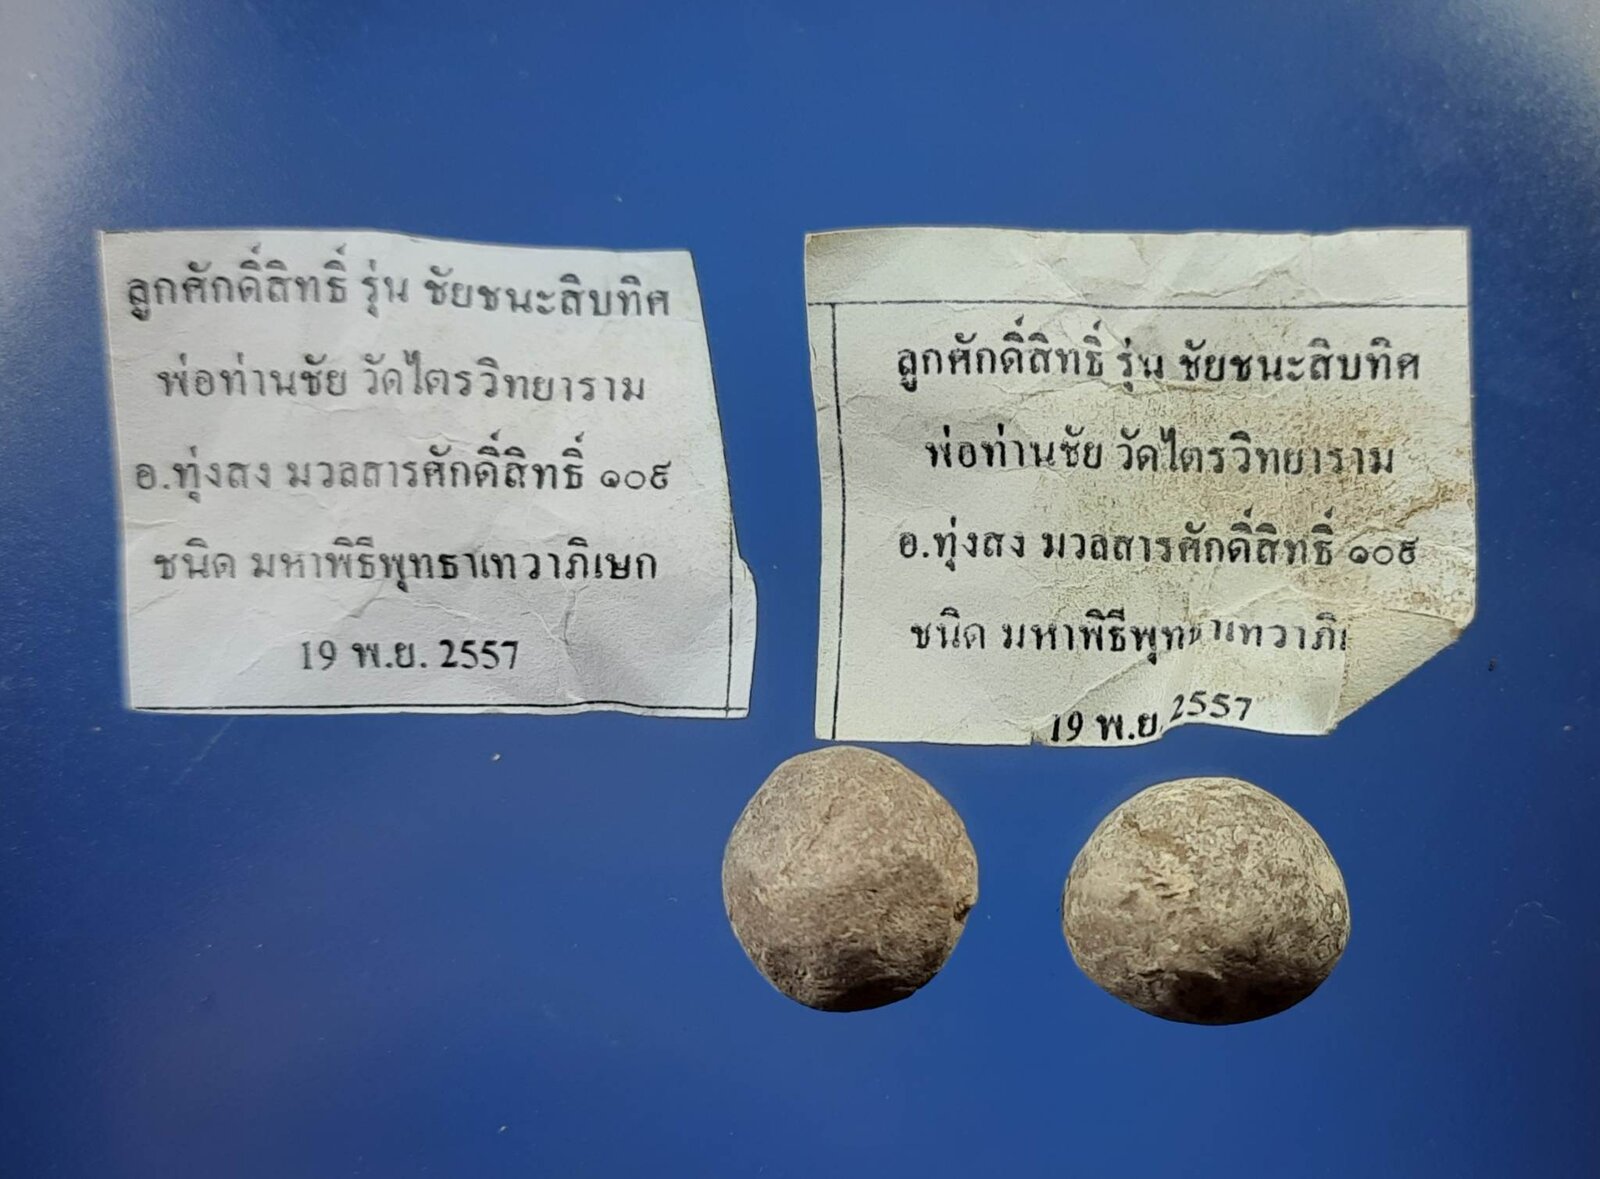 ลูกศักดิ์สิทธิ์ รุ่น ชัยชนะสิบทิศ
พ่อท่านชัย วัดไตรวิทยาราม
อ.ทุ่งสง มวลสารศักดิ์สิทธิ์ ๑๐๙
ชนิด มหาพิธีพุทธาเทวาภิเษก
19 พ.ย. 2557
ลูกศักดิ์สิทธิ์ รุ่น ชัยชนะสิบทิศ
พ่อท่านชัย วัดไตรวิทยาราม
อ.ทุ่งสง มวลสารศักดิ์สิทธิ์ ๑๐๙
ชนิด มหาพิธีพุทธาเทวาภิเ
19 พ.ย. 2557